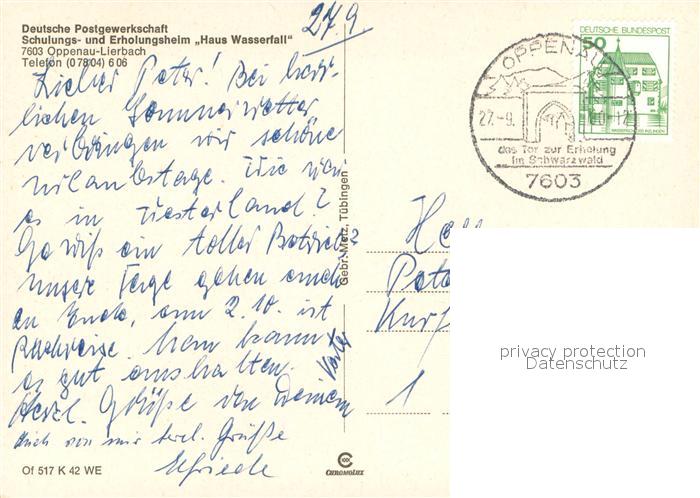 Deutsche Postgewerkschaft
Schulungs- und Erholungsheim „Haus Wasserfall"
7603 Oppenau-Lierbach
Telefon (078 04) 6 06
27.9
Lieber Peter! Bei herr-
lichen Sommerwetter
verbringen wir schöne
Urlaubstage. Wie war
es in Westerland?
Gewiß ein toller Betrieb?
Unsere Tage gehen auch
zu Ende, am 2.10. ist
Rückreise. Man kann
es gut aushalten.
Herzl. Grüße von Deinem
Vater
Auch von mir herzl. Grüße
Elfriede
Of 517 K 42 WE
Gebr. Metz, Tübingen
CHROMOLUX
OPPENAU
27.-9.
das Tor zur Erholung
im Schwarzwald
7603
DEUTSCHE BUNDESPOST
50
WASSERSCHLOSS INZLINGEN
Peter
1
privacy protection
Datenschutz